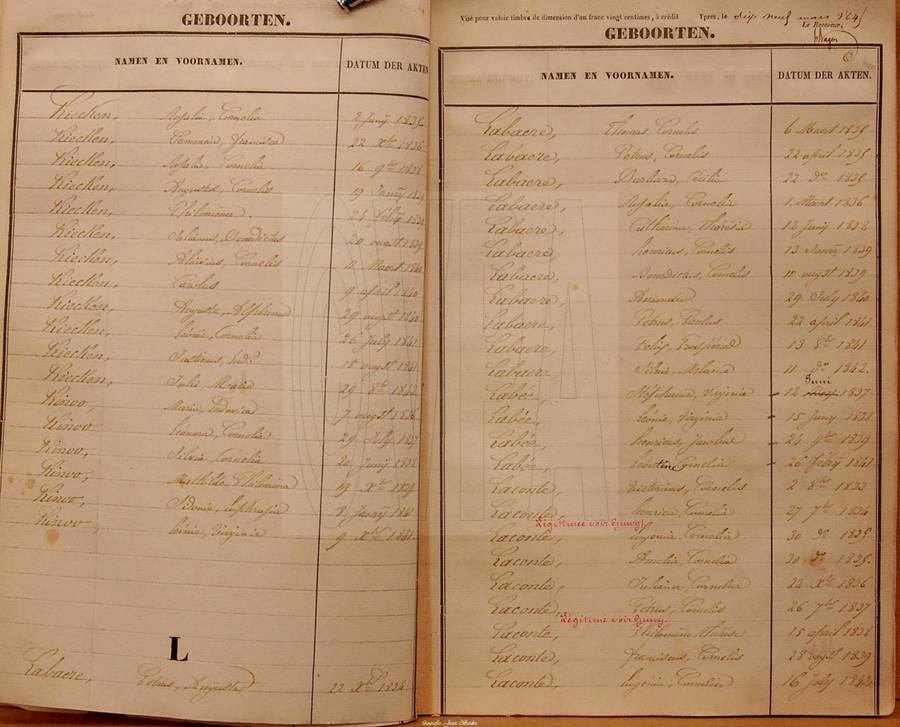 GEBOORTEN.
NAMEN EN VOORNAMEN. DATUM DER AKTEN
Kiecken, Rosalie, Cornelia 2 Juny 1835
Kiecken, Francisca 22 Xbre 1836
Kiecken, Rosalie, Cornelia 16 9bre 1838
Kiecken, Augustus, Cornelis 19 January
Kiecken, Philomena.
Kiecken, Benedictus 20 augst
Kiecken, Aloïsius, Cornelis 11 Maart 1840
Kiecken, Carolus 9 april 1840
Kiecken, Augusta, Delphina 29 augst 1840
Kiecken, Leonie, Cornelia 26 July 1841
Kiecken, Justinus, 15 augst 1841
Kiecken, Julie, Maria 29 8bre 1842
Kinoo, Maria, Ludovica 7 augst 1836
Kinoo Leonora, Cornelia 29 July 1837
Kinoo, Silvie, Cornelia 20 Juny 1838
Kinoo, Mathilde, Philomena 19 Xbre 1839
Kinoo, Sidonie, Euphrasia 8 Janry 1841
Kinoo, Leonie, Virginia 9 Xbre 1841
L
Labaere, Petrus, Augustus 22 Xbre 1834
Visé pour valoir timbre de dimension d'un franc vingt centimes, à crédit Ypres, le dix neuf mars 1845
Le Receveur,
GEBOORTEN.
NAMEN EN VOORNAMEN. DATUM DER AKTEN.
Labaere, Thomas, Cornelis 6 Maart 1835
Labaere, Petrus, Cornelis 22 april 1835
Labaere, Barbara, Cecilia 22 do 1835
Labaere, Rosalie, Cornelia 1 Maart 1836
Labaere, Catharina, Theresia 12 Juny 1838
Labaere, henricus, Cornelis 13 January 1839
Labaere, Benedictus, Cornelis 10 augst 1839
Labaere, Alexander 29 July 1840
Labaere, Petrus, Paulus 22 april 1841
Labaere, Felix, 13 8bre 1841
Labaere Silvie, Melania 11 do 1842.
Juni
Labée, Stéphanie, Virginia 12 1837
Labée, Leonie, Virginia 15 Juny 1838
Labée, henricus, Jacobus 24 9bre 1839
Labée, Léontine Cornelia 26 febry 1841
Laconte, Victorinus, Cornelis 2 8bre 1833
Laconte, henricus, Cornelis 27 7bre 1834
Légitimée voir Gruwy
Laconte, Eugenia, Cornelia 30 do 1835
Laconte, Amelia, Cornelia 30 do 1835.
Laconte, Juliana, Cornelia 22 Xbre 1836
Laconte, Petrus, Cornelis 26 7bre 1837
Légitimé voir Gruwy.
Laconte, Philomène, Thérèse 15 april 1838
Laconte, franciscus, Cornelis 28 augst 1839
Laconte, Eugenie, Cornelia 16 July 1842